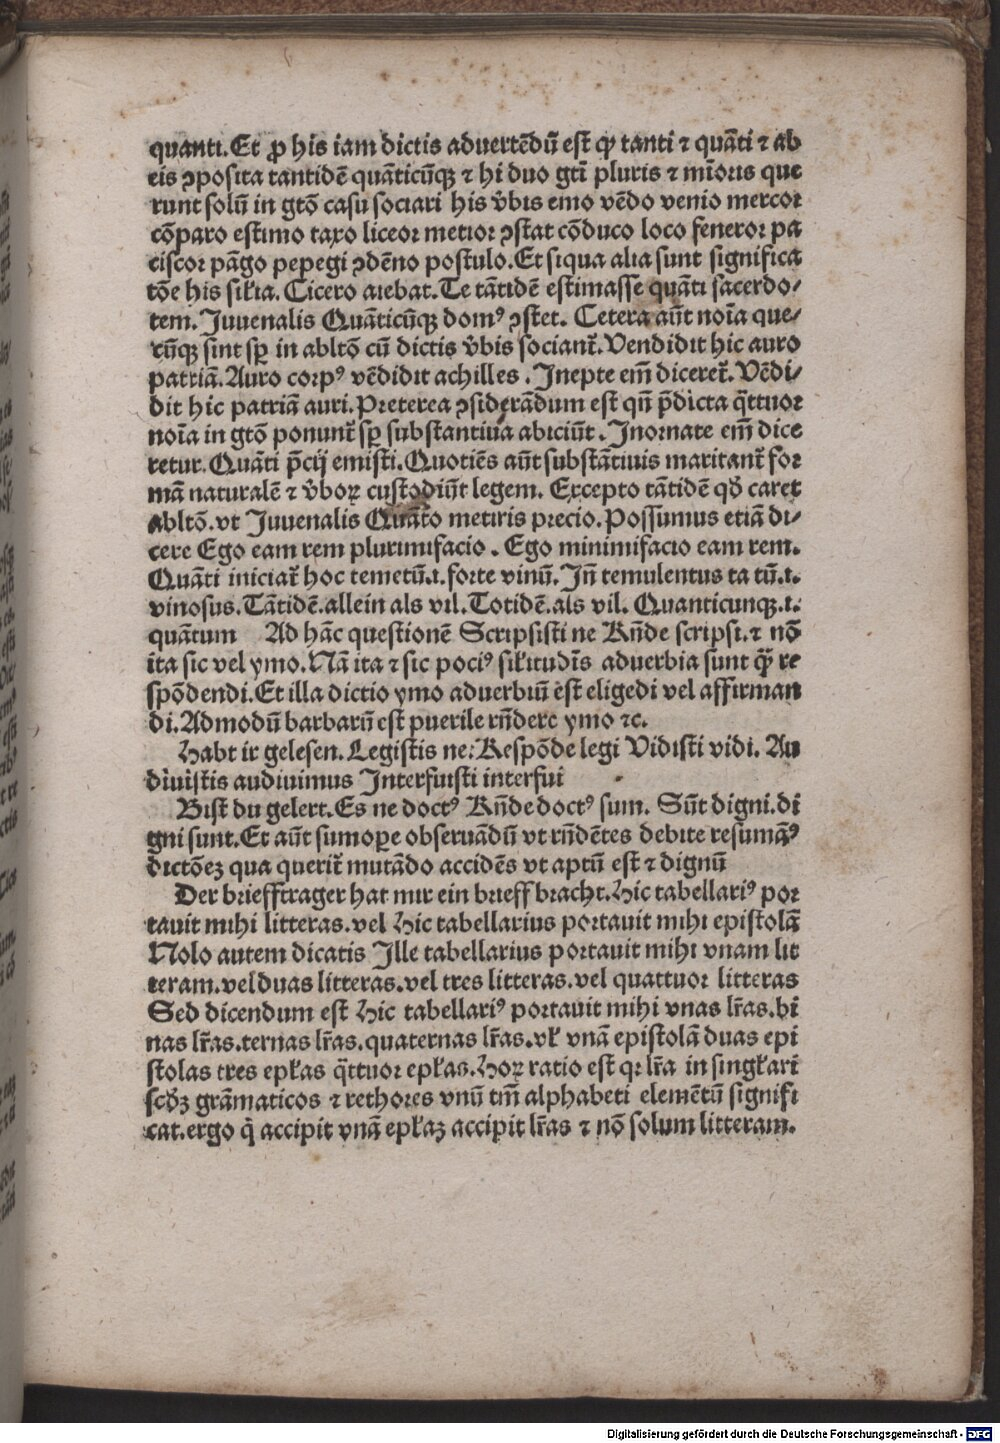 quanti. Et ꝓ his iam dictis aduertēdū est ꝙ tanti ⁊ quāti ⁊ ab
eis ↄposita tantidē quāticūqꝫ ⁊ hi duo gt̄i pluris ⁊ mīoris que
runt solū in gtō casu sociari his v̄bis emo vēdo venio mercor
cōparo estimo taxo liceor metior ↄstat cōduco loco feneror pa
ciscor pāgo pepegi ↄdēno postulo. Et siqua alia sunt significa
tōe his sil̄ia. Cicero aiebat. Te tātidē estimasse quāti sacerdo/
tem. Juuenalis Quāticūqꝫ domꝰ ↄstet. Cetera aūt noīa que/
cūqꝫ sint sꝑ in abltō cū dictis v̄bis sociant᷑. Vendidit hic auro
patriā. Auro corpꝰ vēdidit achilles. Inepte em̄ diceret᷑. Vēdi/
dit hic patriā auri. Preterea ↄsiderādum est qn̄ p̄dicta q̄ttuor
noīa in gtō ponunt᷑ sꝑ substantiua abiciūt. Inornate em̄ dice
retur. Quāti p̄cij emisti. Quotiēs aūt substātiuis maritant᷑ for
mā naturalē ⁊ v̄boꝝ custodiūt legem. Excepto tātidē qđ caret
abltō. vt Juuenalis Quāto metiris precio. Possumus etiā di/
cere Ego eam rem plurimifacio. Ego minimifacio eam rem.
Quāti iniciat᷑ hoc temetū .ı. forte vinū. Jn̄ temulentus ta tū .ı.
vinosus. Tātidē. allein als vil. Totidē. als vil. Quanticunqꝫ .ı.
quātum Ad hāc questionē Scripsisti ne Rn̄de scripsi. ⁊ nō
ita sic vel ymo. Nā ita ⁊ sic pociꝰ sil̄itudīs aduerbia sunt q̄ꝫ re
spōdendi. Et illa dictio ymo aduerbiū est eligedi vel affirman
di. Admodū barbarū est puerile rn̄dere ymo ⁊c.
Habt ir gelesen. Legistis ne: Respōde legi Vidisti vidi. Au
diuistis audiuimus Interfuisti interfui
Bist du gelert. Es ne doctꝰ Rn̄de doctꝰ sum. Sūt digni. di
gni sunt. Et aūt sumoꝑe obseruādū vt rn̄dētes debite resumāꝰ
dictōeꝫ qua querit᷑ mutādo accidēs vt aptū est ⁊ dignū
Der briefftrager hat mir ein brieff bracht. Hic tabellariꝰ por
tauit mihi litteras. vel Hic tabellarius portauit mihi epistolā
Nolo autem dicatis Ille tabellarius portauit mihi vnam lit
teram. vel duas litteras. vel tres litteras. vel quattuor litteras
Sed dicendum est Hic tabellariꝰ portauit mihi vnas lr̄as. bi
nas lr̄as. ternas lr̄as. quaternas lr̄as. vl̄ vnā epistolā duas epi
stolas tres epl̄as q̄ttuor epl̄as. Hoꝝ ratio est qꝛ lr̄a in singl̄ari
scđꝫ grāmaticos ⁊ rethores vnū tm̄ alphabeti elemētū signifi
cat. ergo q̄ accipit vnā epl̄aꝫ accipit lr̄as ⁊ nō solum litteram.
Digitalisierung gefördert durch die Deutsche Forschungsgemeinschaft - DFG